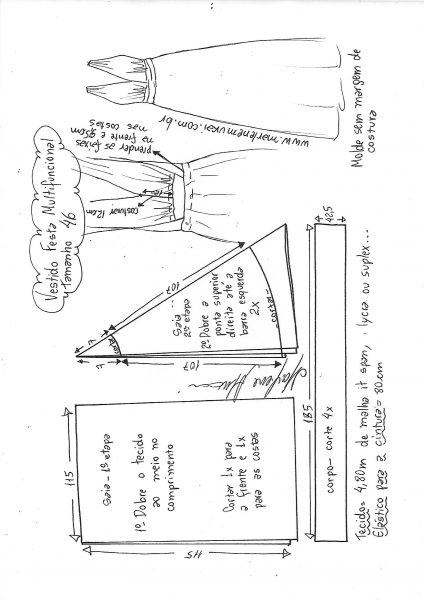 Vestido Festa Multifuncional
Tamanho 46
prender as faixas
na frente e
nas costas
costurar 12cm
www.marlenemukai.com.br
Molde sem margem de
costura
115
Saia - 1ª etapa
1º Dobre o tecido
ao meio no
comprimento
Cortar 1x para
a frente e 1x
para as costas
115
7
107
cortar
7
107
Saia
2ª etapa
2º Dobre a
ponta superior
direita até a
barra esquerda
2x
cortar
Marlene Mukai
185
42,5
corpo - corte 4x
Tecido= 4,80m de malha it span, lycra ou suplex...
Elástico para a cintura = 80cm